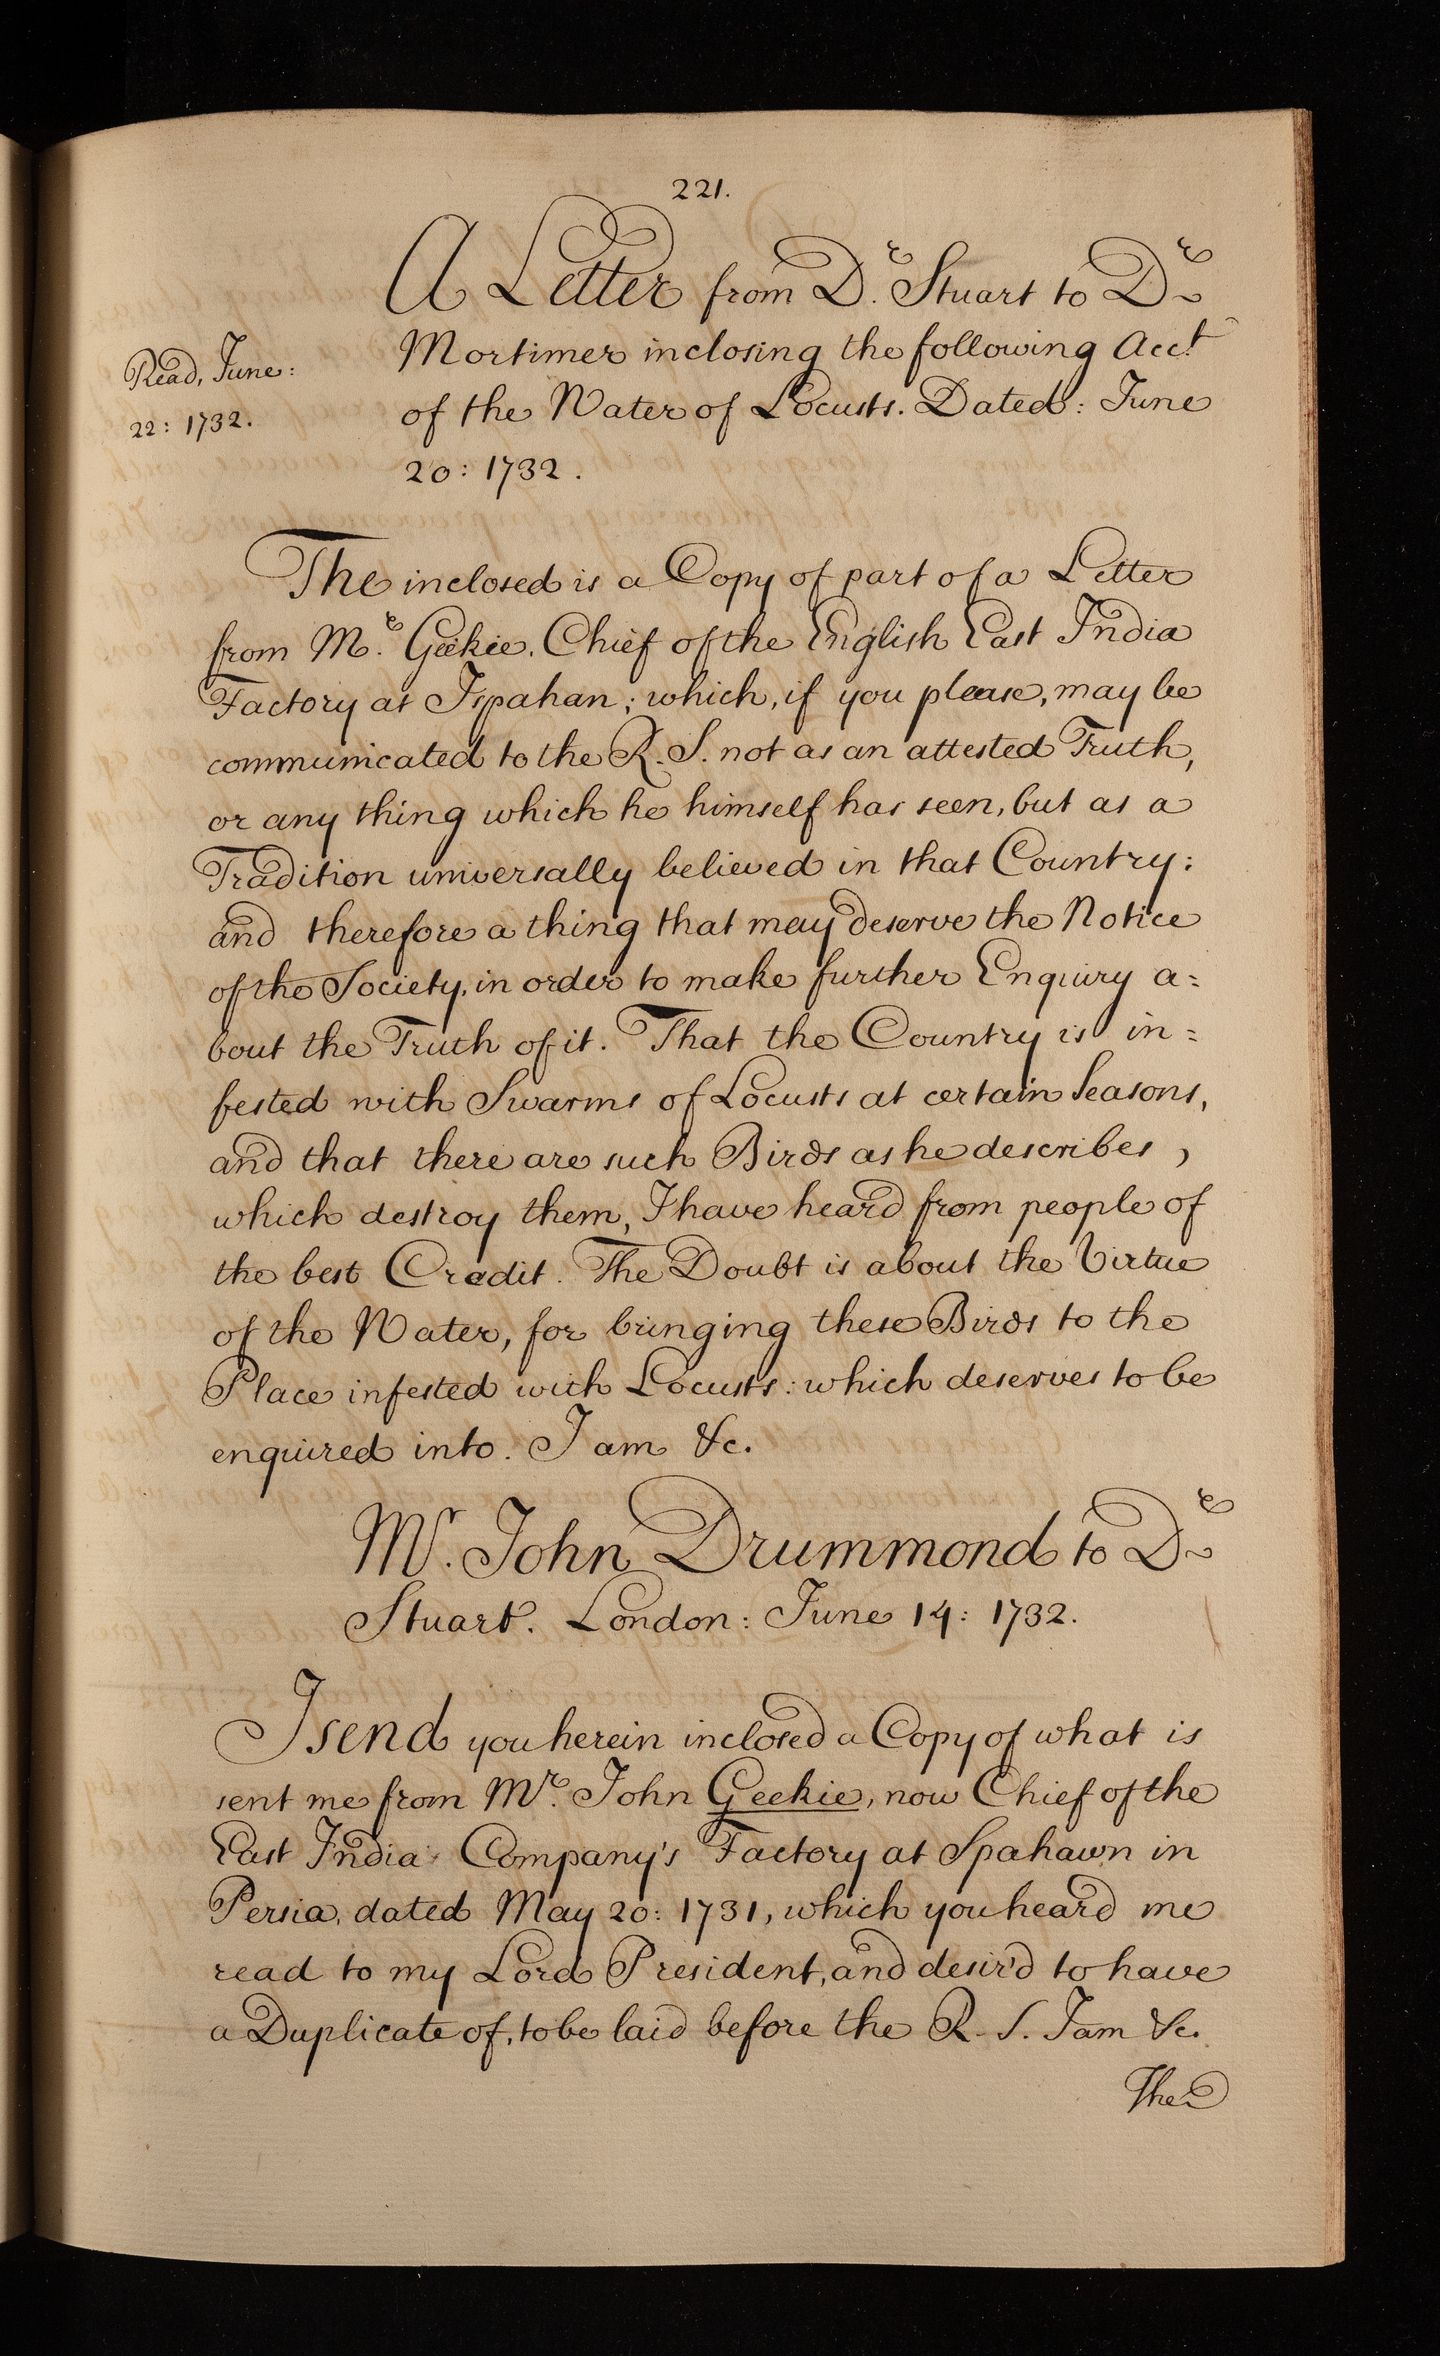 221.
A Letter from Dr. Stuart to Dr
Mortimer inclosing the following Acct.
Read, June:
22: 1732.
of the Water of Locusts. Dated: June
20: 1732.
The inclosed is a Copy of part of a Letter
from Mr. Geekie, Chief of the English East India
Factory at Ispahan; which, if you please, may be
communicated to the R. S. not as an attested Truth,
or any thing which he himself has seen, but as a
Tradition universally believed in that Country:
and therefore a thing that may deserve the Notice
of the Society, in order to make further Enquiry a=
bout the Truth of it. That the Country is in=
fested with Swarms of Locusts at certain Seasons,
and that there are such Birds as he describes,
which destroy them, I have heard from people of
the best Credit. The Doubt is about the Virtue
of the Water, for bringing these Birds to the
Place infested with Locusts: which deserves to be
enquired into. I am &c.
Mr. John Drummond to Dr
Stuart. London: June 14: 1732.
I send you herein inclosed a Copy of what is
sent me from Mr. John Geekie, now Chief of the
East India Company's Factory at Spahawn in
Persia, dated May 20: 1731, which you heard me
read to my Lord President, and desir'd to have
a Duplicate of, to be laid before the R. S. I am &c.
The